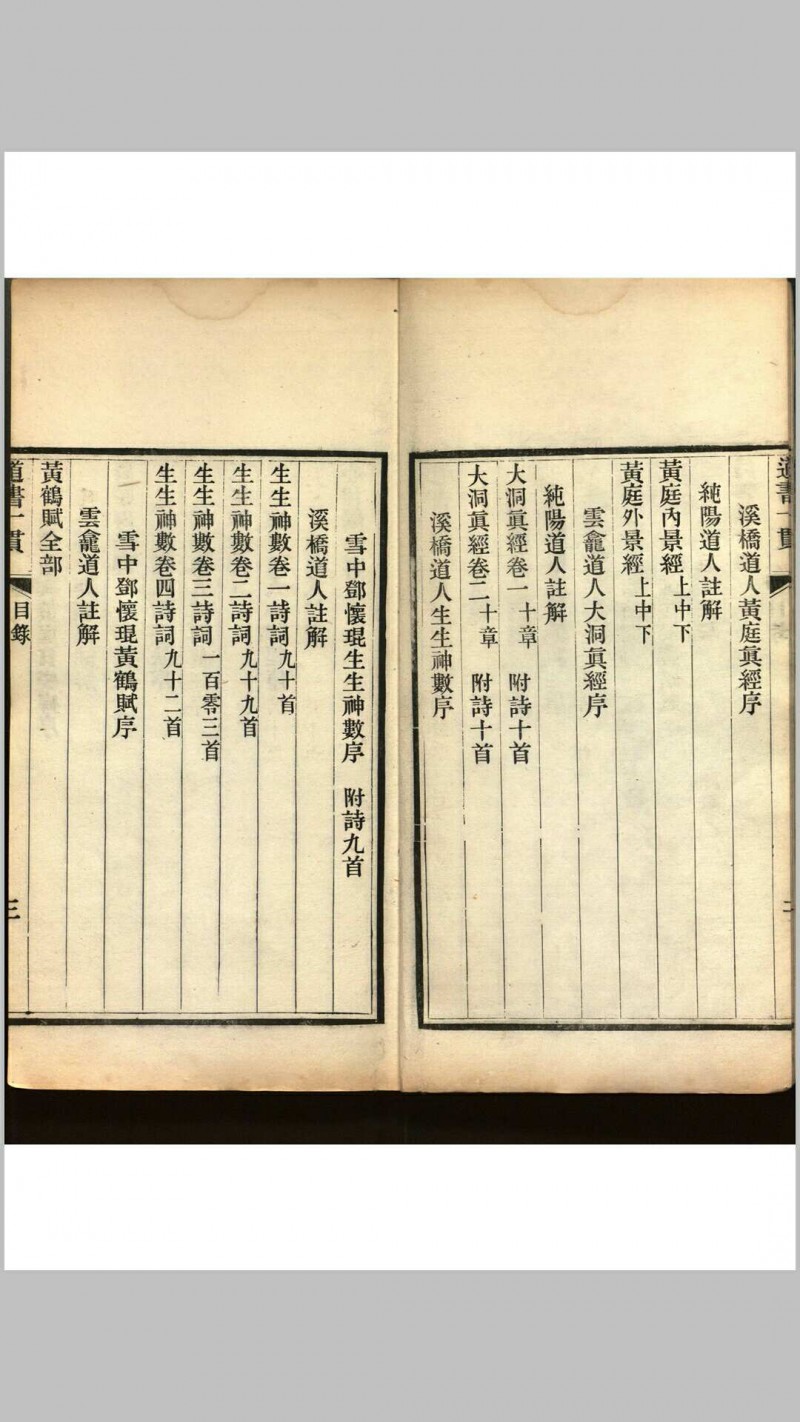 溪橋道人黃庭眞經序
純陽道人註解
黃庭內景經上中下
黃庭外景經上中下
雲龕道人大洞眞經序
純陽道人註解
大洞眞經卷一十章　附詩十首
大洞眞經卷二十章　附詩十首
溪橋道人生生神數序
雪中鄧懷琨生生神數序　附詩九首
溪橋道人註解
生生神數卷一詩詞九十首
生生神數卷二詩詞九十九首
生生神數卷三詩詞一百零三首
生生神數卷四詩詞九十二首
雪中鄧懷琨黃鶴賦序
雲龕道人註解
黃鶴賦全部
道書一貫　目錄　三